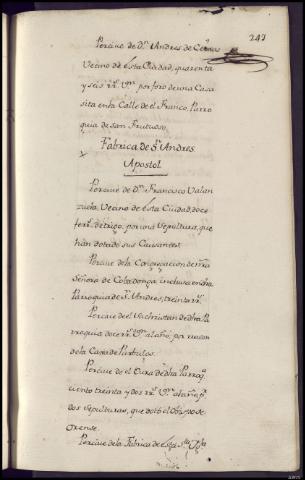 247
Percive de Dn. Andres de
Vecino de esta Ciudad, quarenta
y seis rrs. Vn. por foro de una Casa
sita en la Calle de el Franco, Parro
quia de San Frutuoso.
Fabrica de Sn. Andres
Apostol
Percive de Dn. Francisco Valan
zuela, Vecino de esta Ciudad, doce
ferrs. de trigo, por una Sepultura, que
han dotado sus Causantes
Percive de la Congregacion de nra
Señora de Cobadonga, inclusa en dha
Parroquia de Sn. Andres, treinta rrs.
Percive de el Sachristan de dha Pa
rroquia doce rrs. Vn. al año, por razon
de la Caxa de Parbulos.
Percive de el Cura de dha Parroqa.
ciento treinta y dos rrs. Vn. al año pr.
dos sepulturas, que dotò el Obispo de
Orense.
Percive de la Fabrica de esta Sta. Ygla